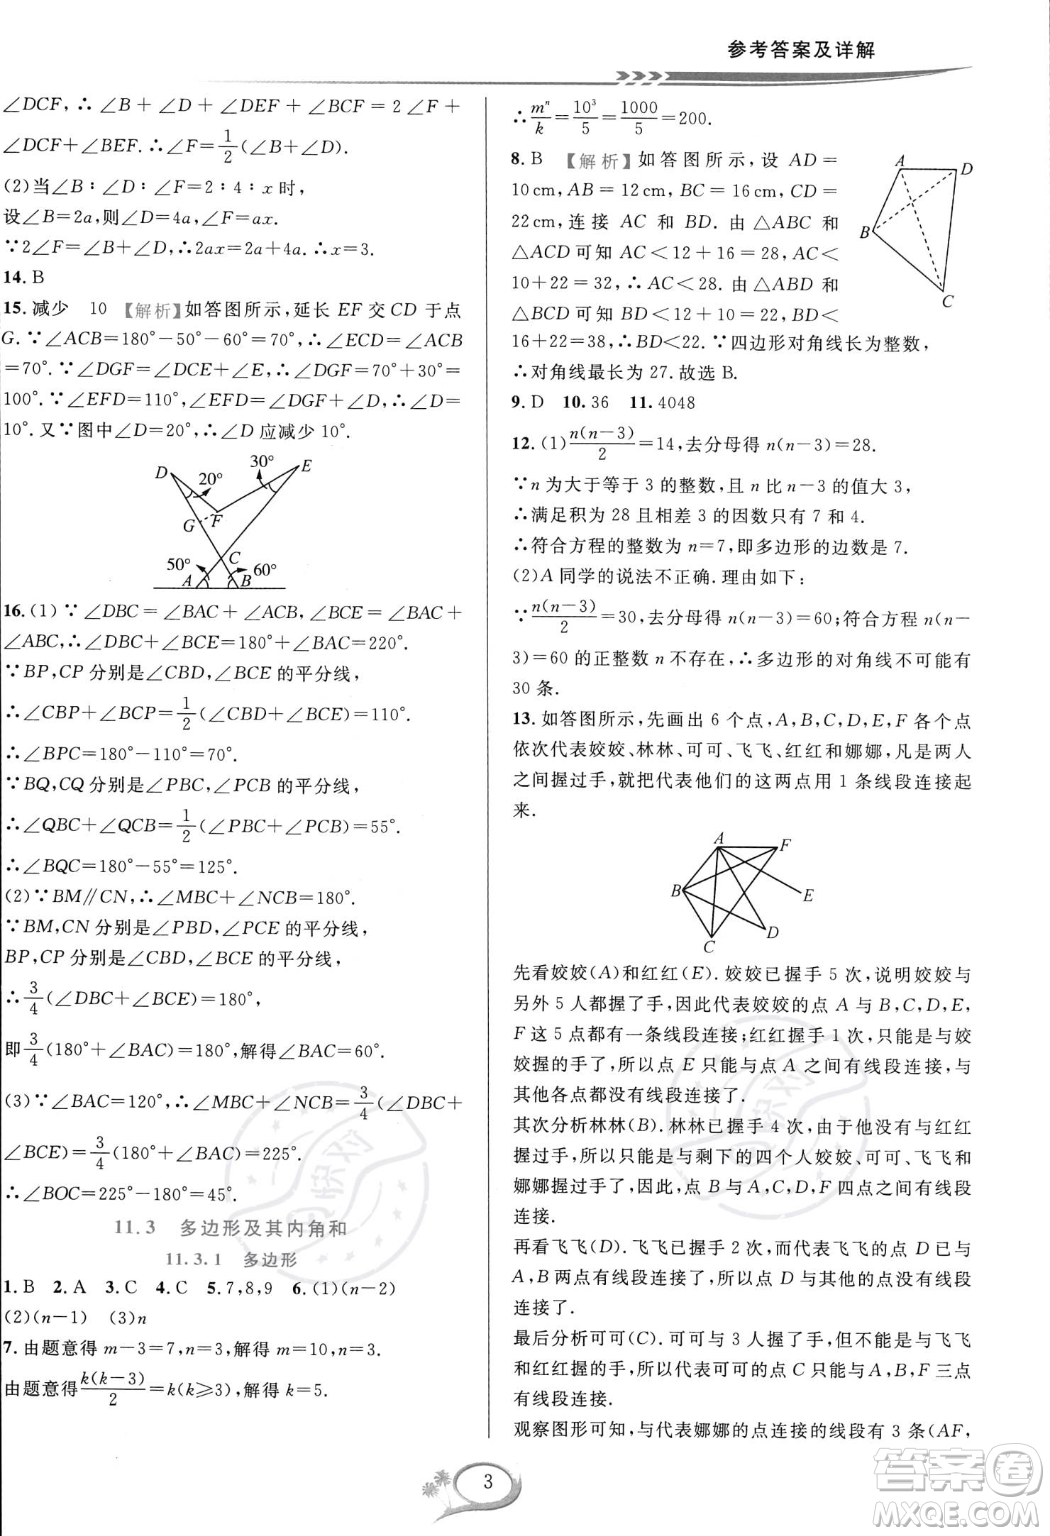 参考答案及详解
∠DCF,∴∠B+∠D+∠DEF+∠BCF=2∠F+
∠DCF+∠BEF.∴∠F=1/2(∠B+∠D).
(2)当∠B∶∠D∶∠F=2∶4∶x时,
设∠B=2a,则∠D=4a,∠F=ax.
∵2∠F=∠B+∠D,∴2ax=2a+4a.∴x=3.
14.B
15.减少 10 【解析】如答图所示,延长EF交CD于点
G.∵∠ACB=180°-50°-60°=70°,∴∠ECD=∠ACB
=70°.∵∠DGF=∠DCE+∠E,∴∠DGF=70°+30°=
100°.∵∠EFD=110°,∠EFD=∠DGF+∠D,∴∠D=
10°.又∵图中∠D=20°,∴∠D应减少10°.
D 20° 30° E
G F
50° C 60°
A B
16.(1)∵∠DBC=∠BAC+∠ACB,∠BCE=∠BAC+
∠ABC,∴∠DBC+∠BCE=180°+∠BAC=220°.
∵BP,CP分别是∠CBD,∠BCE的平分线,
∴∠CBP+∠BCP=1/2(∠CBD+∠BCE)=110°,
∴∠BPC=180°-110°=70°.
∵BQ,CQ分别是∠PBC,∠PCB的平分线,
∴∠QBC+∠QCB=1/2(∠PBC+∠PCB)=55°.
∴∠BQC=180°-55°=125°.
(2)∵BM∥CN,∴∠MBC+∠NCB=180°.
∵BM,CN分别是∠PBD,∠PCE的平分线,
BP,CP分别是∠CBD,∠BCE的平分线,
∴3/4(∠DBC+∠BCE)=180°,
即3/4(180°+∠BAC)=180°,解得∠BAC=60°.
(3)∵∠BAC=120°,∴∠MBC+∠NCB=3/4(∠DBC+
∠BCE)=3/4(180°+120°)=225°.
∴∠BOC=225°-180°=45°.
11.3 多边形及其内角和
11.3.1 多边形
1.B 2.A 3.C 4.C 5.7,8,9 6.(1)(n-2)
(2)(n-1) (3)n
7.由题意得m-3=7,解得m=10,n=3.
由题意得k(k-3)/2=k(k≥3),解得k=5.
∴m^n/k=10³/5=1000/5=200.
8.B 【解析】如答图所示,设AD=
10cm,AB=12cm,BC=16cm,CD=
22cm,连接AC和BD.由△ABC和
△ACD可知AC<12+16=28,AC<
10+22=32,∴AC<28.由△ABD和
△BCD可知BD<10+12=22,BD<
16+22=38,∴BD<22.∵四边形对角线长为整数,
∴对角线最长为27.故选B.
A D
B
C
9.D 10.36 11.4048
12.(1)n(n-3)/2=14,去分母得n(n-3)=28.
∵n为大于等于3的整数,且n比n-3的值大3,
∴满足积为28且相差3的因数只有7和4.
∴符合方程的整数为n=7,即多边形的边数是7.
(2)A同学的说法不正确.理由如下:
∵n(n-3)/2=30,去分母得n(n-3)=60;符合方程n(n-
3)=60的正整数n不存在,∴多边形的对角线不可能有
30条.
13.如答图所示,先画出6个点,A,B,C,D,E,F各个点
依次代表姣姣、林林、可可、飞飞、红红和娜娜,凡是两人
之间握过手,就把代表他们的这两点用1条线段连接起
来.
A F
B E
C D
先看姣姣(A)和红红(E).姣姣已握手5次,说明姣姣与
另外5人都握了手,因此代表姣姣的点A与B,C,D,E,
F这5点都有一条线段连接;红红握手1次,只能是与姣
姣握的手了,所以点E只能与点A之间有线段连接,与
其他各点都没有线段连接了.
其次分析林林(B).林林已握手4次,由于他没有与红红
握过手,因此只能是与剩下的四个人姣姣、可可、飞飞和
娜娜握过手,所以点B与A,C,D,F四点之间有线段连
接.
再看飞飞(D).飞飞只握手2次,而代表飞飞的点D与
A,B两点有线段连接了,所以点D与其他点都没有线段
连接了.
最后分析可可(C).可可与3人握了手,但不是与飞飞
和红红握的手,所以代表可可的点C只能与A,B,F三点
有线段连接.
观察图形可知,与代表娜娜的点连接的线段有3条(AF,
3
答案卷
MXQE.COM